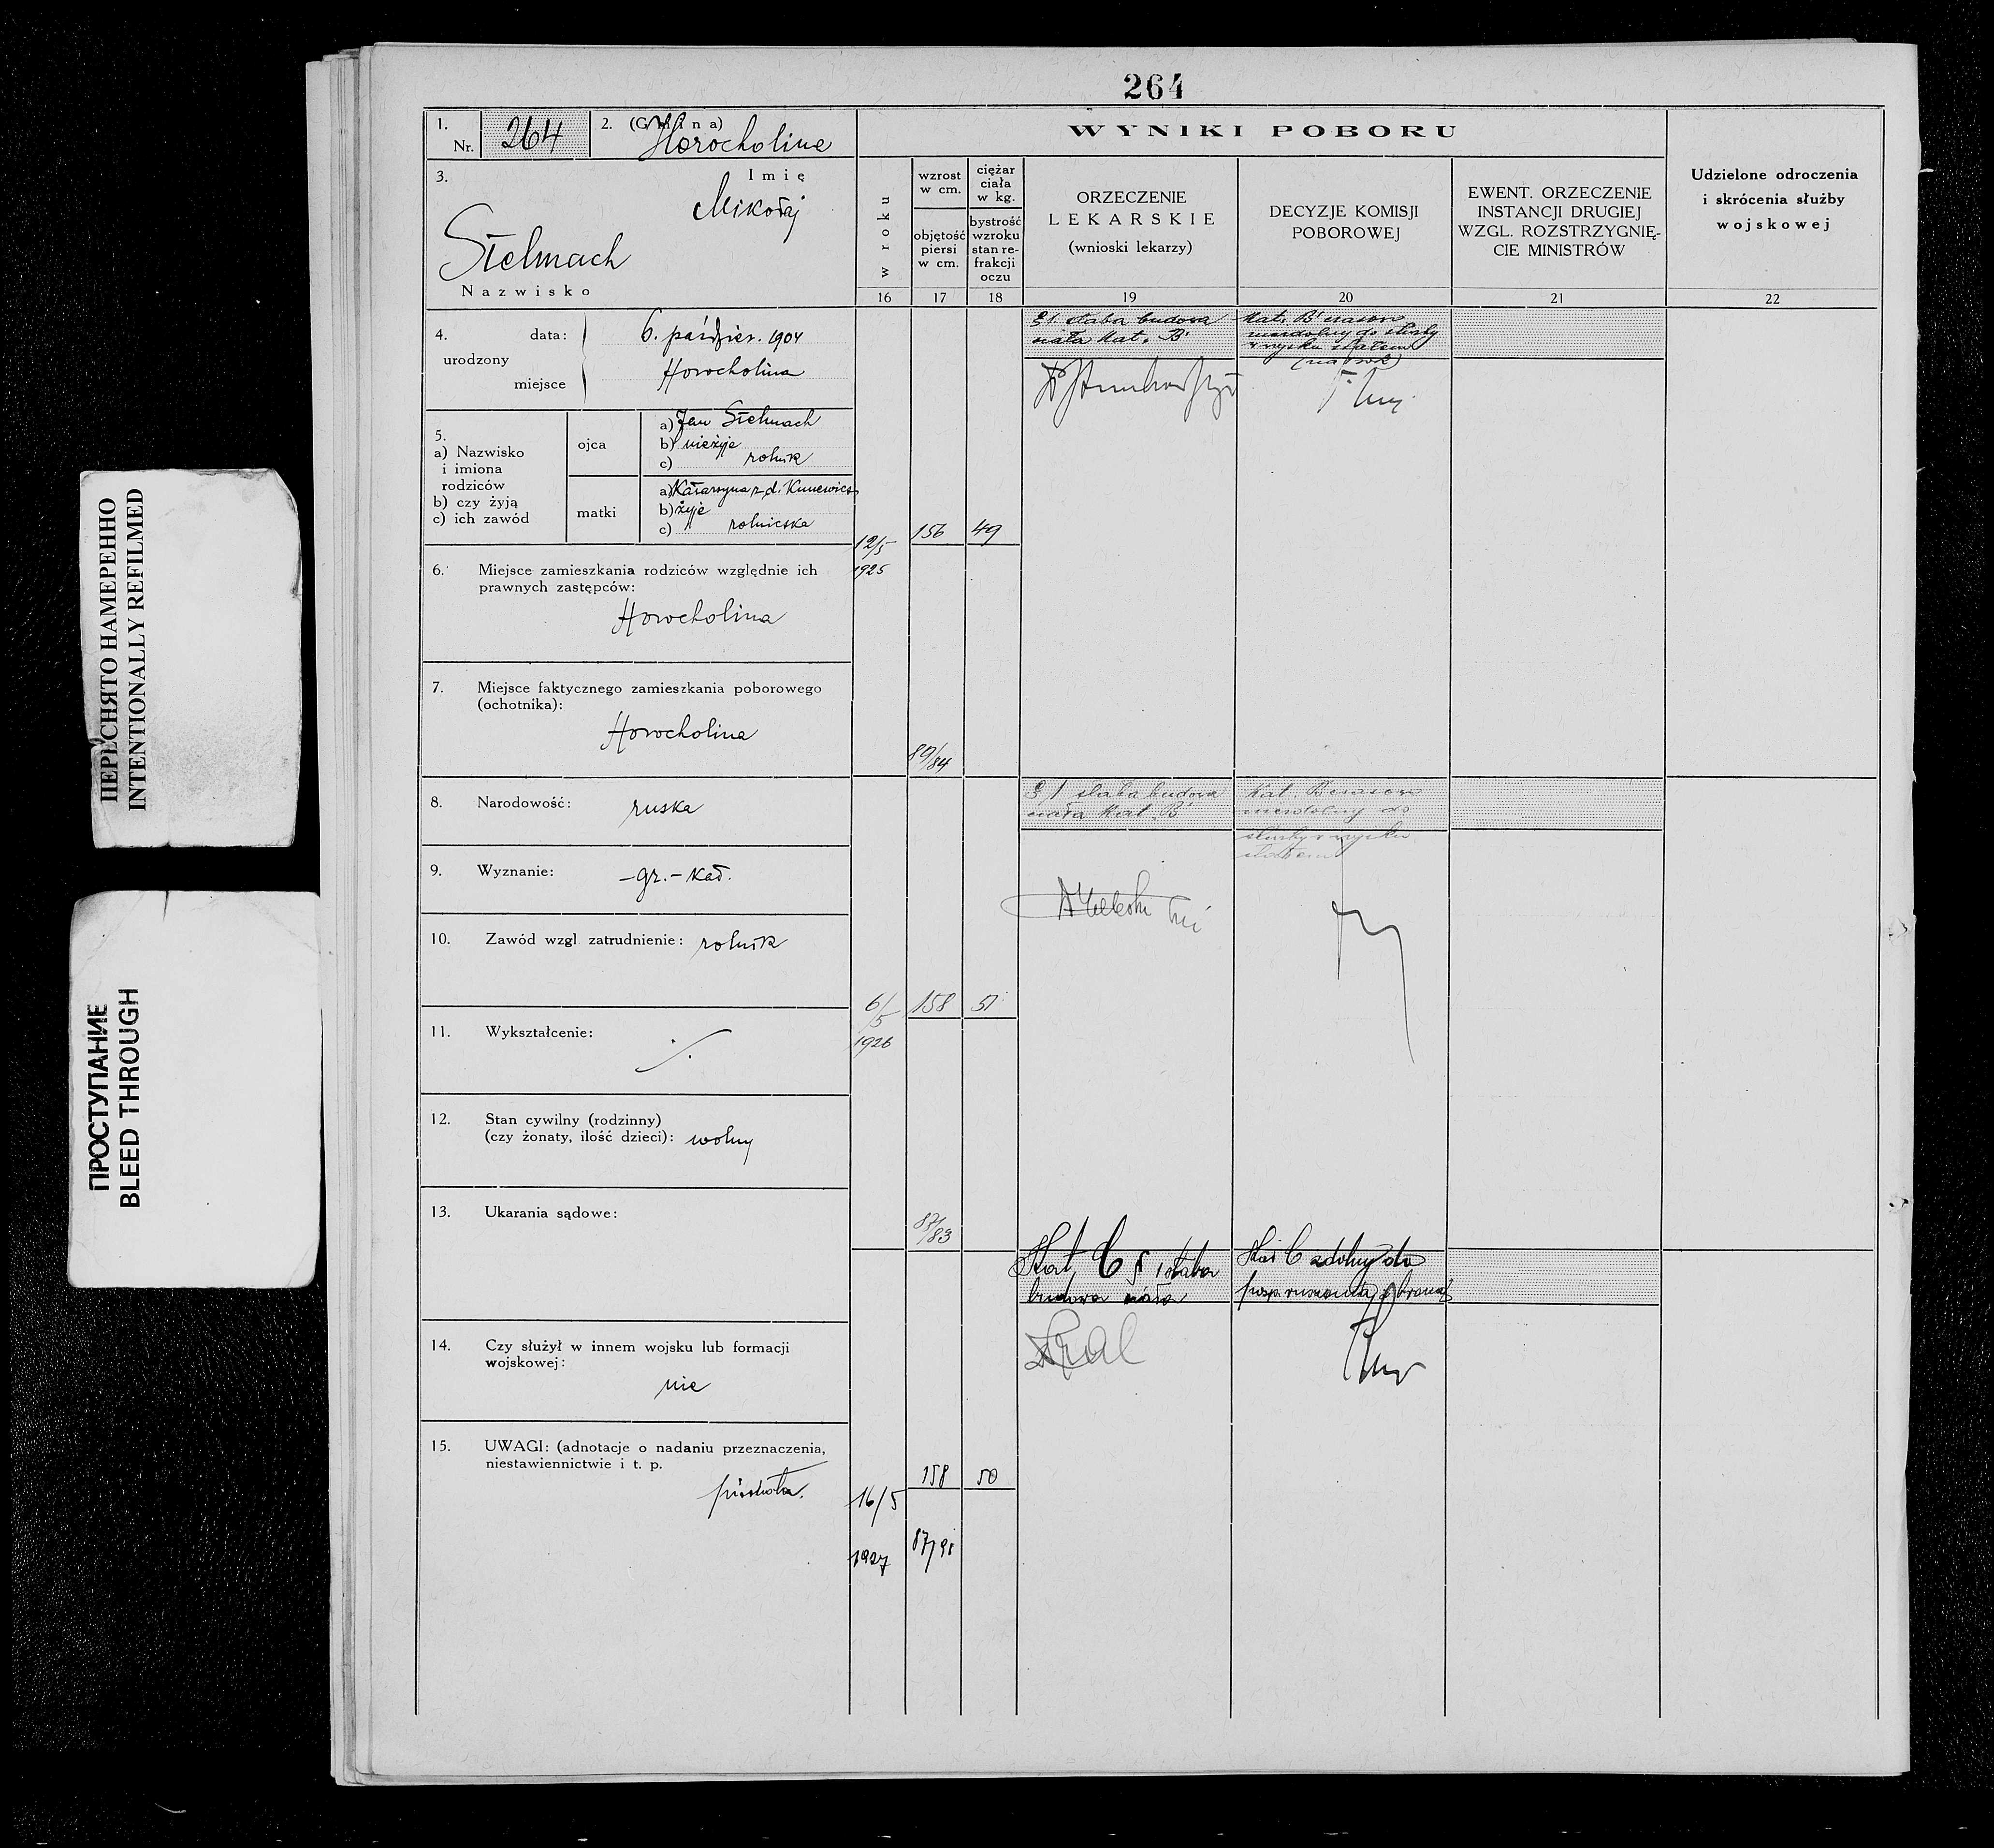 264
1.
Nr. 264
2. (Gmina)
Horocholina
3.
Imię
Mikołaj
Stelmach
Nazwisko
4.
urodzony
data: 6. paździer. 1904
miejsce Horocholina
5.
a) Nazwisko
i imiona
rodziców
b) czy żyją
c) ich zawód
ojca
a) Jan Stelmach
b) nieżyje
c) rolnik
matki
a) Katarzyna z d.
b) żyje
c) rolniczka
6. Miejsce zamieszkania rodziców względnie ich
prawnych zastępców:
Horocholina
7. Miejsce faktycznego zamieszkania poborowego
(ochotnika):
Horocholina
8. Narodowość: ruska
9. Wyznanie: –gr.–kat.
10. Zawód wzgl. zatrudnienie: rolnik
11. Wykształcenie:
·/.
12. Stan cywilny (rodzinny)
(czy żonaty, ilość dzieci): wolny
13. Ukarania sądowe:
14. Czy służył w innem wojsku lub formacji
wojskowej:
nie
15. UWAGI: (adnotacje o nadaniu przeznaczenia,
niestawiennictwie i t. p.
piechota.
WYNIKI POBORU
w roku
wzrost
w cm.
objętość
piersi
w cm.
ciężar
ciała
w kg.
bystrość
wzroku
stan re-
frakcji
oczu
ORZECZENIE
LEKARSKIE
(wnioski lekarzy)
DECYZJE KOMISJI
POBOROWEJ
EWENT. ORZECZENIE
INSTANCJI DRUGIEJ
WZGL. ROZSTRZYGNIĘ-
CIE MINISTRÓW
Udzielone odroczenia
i skrócenia służby
wojskowej
16 17 18 19 20 21 22
§1 słaba budowa
ciała Kat. B
Kat. B czasowo
niezdolny do służby
w wojsku stałem
12/5
1925
156
49
89/84
§1 słaba budowa
ciała Kat. B
Kat B czasowo
niezdolny do
służby w wojsku
stałem
6/5
1926
158
51
87/83
Kat. C § 1 słaba
budowa ciała
Kat C zdolny do
posp. ruszenia z bronią
16/5
1927
158
50
ПЕРЕСНЯТО НАМЕРЕННО
INTENTIONALLY REFILMED
ПРОСТУПАНИЕ
BLEED THROUGH